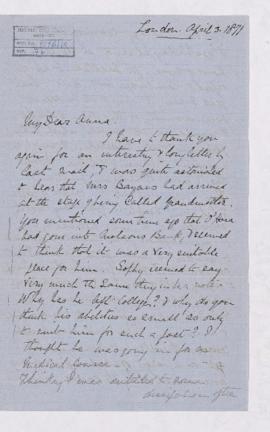 London April 3. 1871
My Dear Anna
I have to thank you
again for an interesting & long letter by
last mail, I was quite astonished
to hear that Mrs had arrived
at the stage of being called Grandmother.
You mentioned some time ago that
had gone into Bank, & seemed
to think that it was a very suitable
place for him. Sophy seemed to say
very much the same thing in her note.
Why has he left College? & why do you
think his abilities so small as only
to suit him for such a post? I
thought he was going in for some
Medical course
Thursday I was